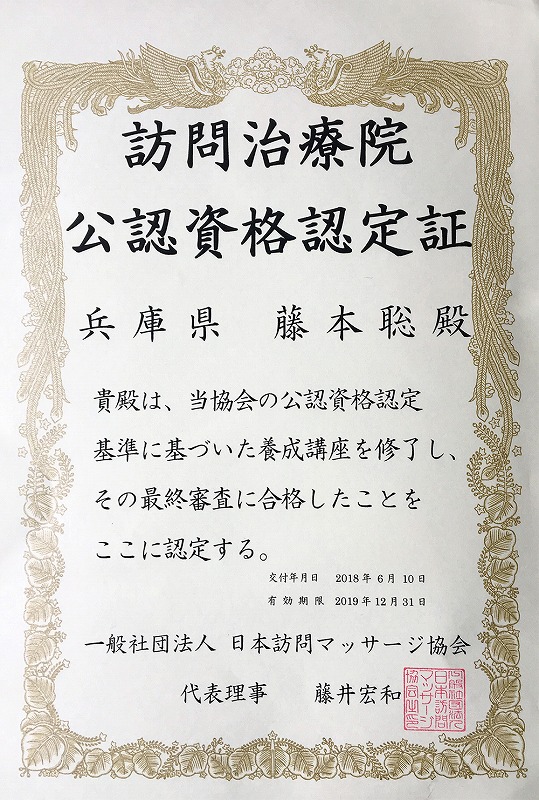 訪問治療院
公認資格認定証
兵庫県 藤本聡殿
貴殿は、当協会の公認資格認定
基準に基づいた養成講座を修了し、
その最終審査に合格したことを
ここに認定する。
交付年月日 2018年6月10日
有効期限 2019年12月31日
一般社団法人 日本訪問マッサージ協会
代表理事 藤井宏和
一般社団法人
日本訪問
マッサージ
協会之印